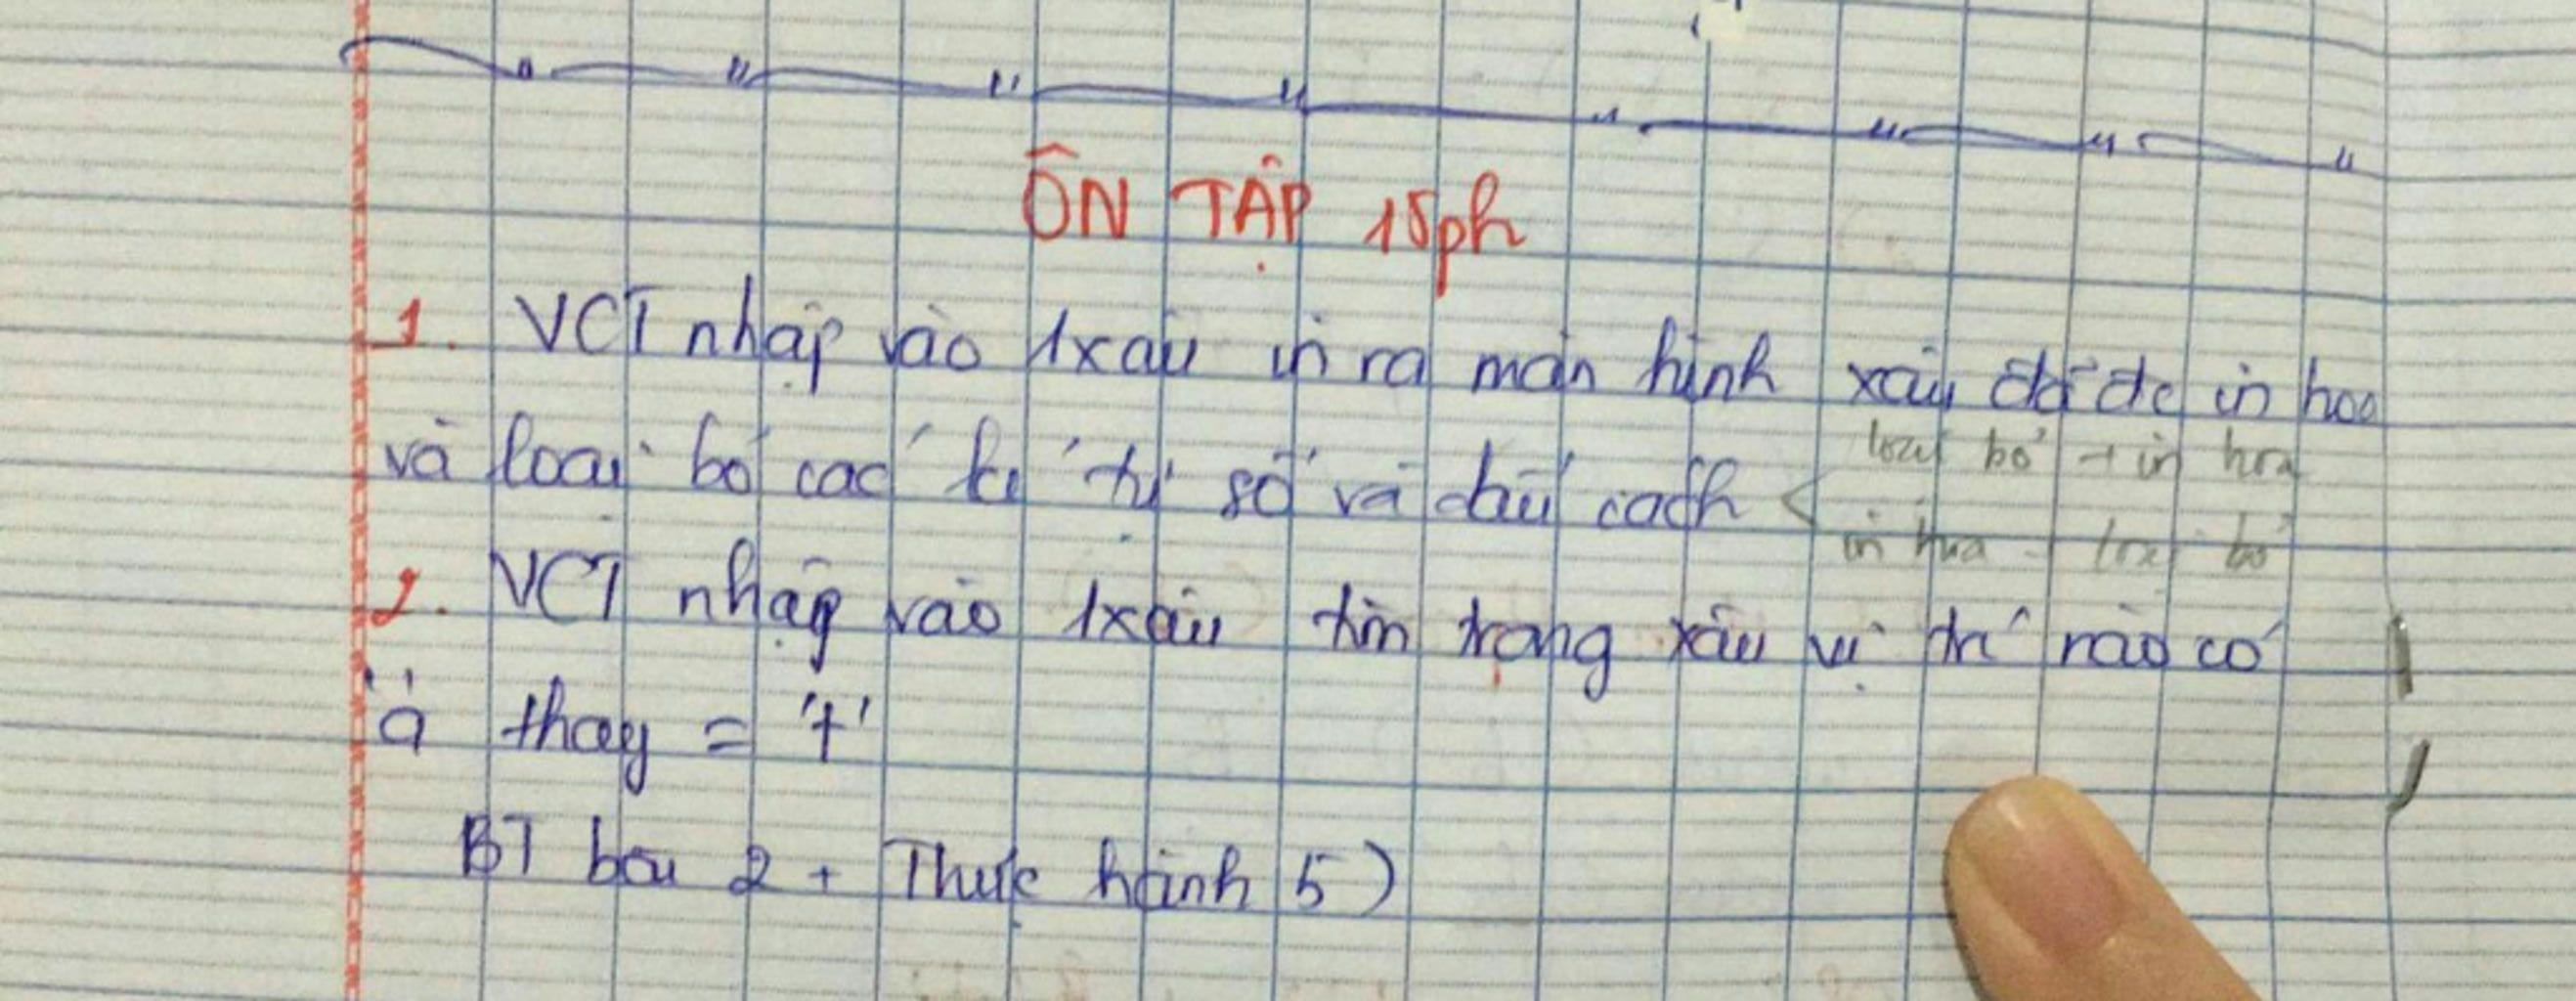 ÔN TẬP 15ph
1. VCT nhập vào 1 xâu in ra màn hình xâu đã đc in hoa
và loại bỏ các kí tự số và dấu cách < loại bỏ + in hoa
in hoa + loại bỏ
2. VCT nhập vào 1 xâu tìm trong xâu vị trí nào có
'a' thay = 't'
BT bài 2 + Thực hành 5)